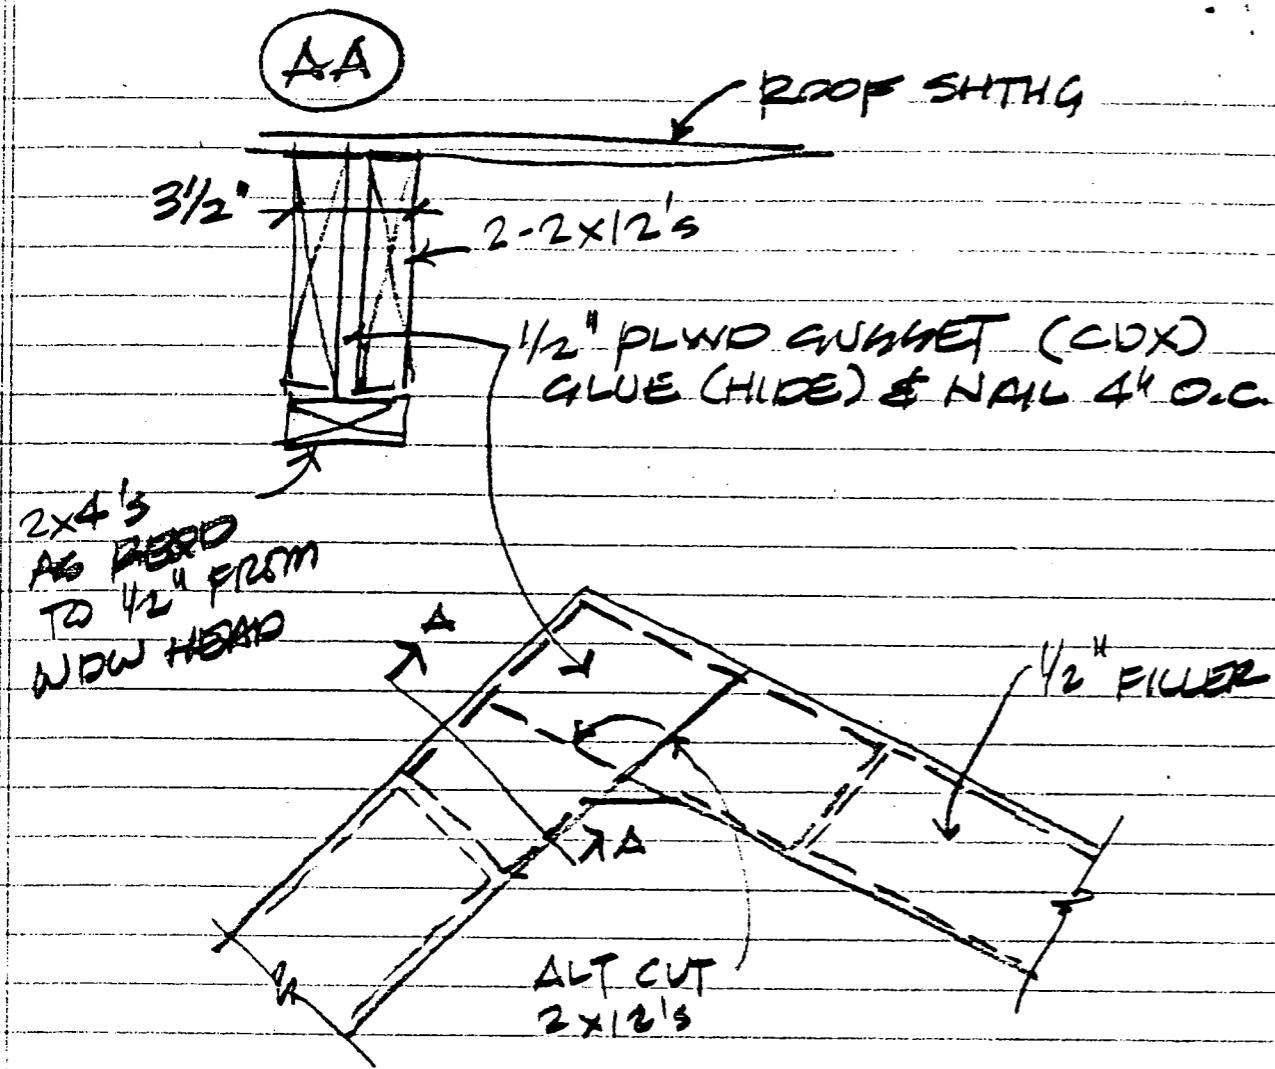 AA
ROOF SHTHG
3 1/2"
2-2x12's
1/2" PLWD GUSSET (CDX)
GLUE (HIDE) & NAIL 4" O.C.
2x4's
AS REQD
TO 1/2" FROM
WDW HEAD
A
1/2" FILLER
A
ALT CUT
2x12's